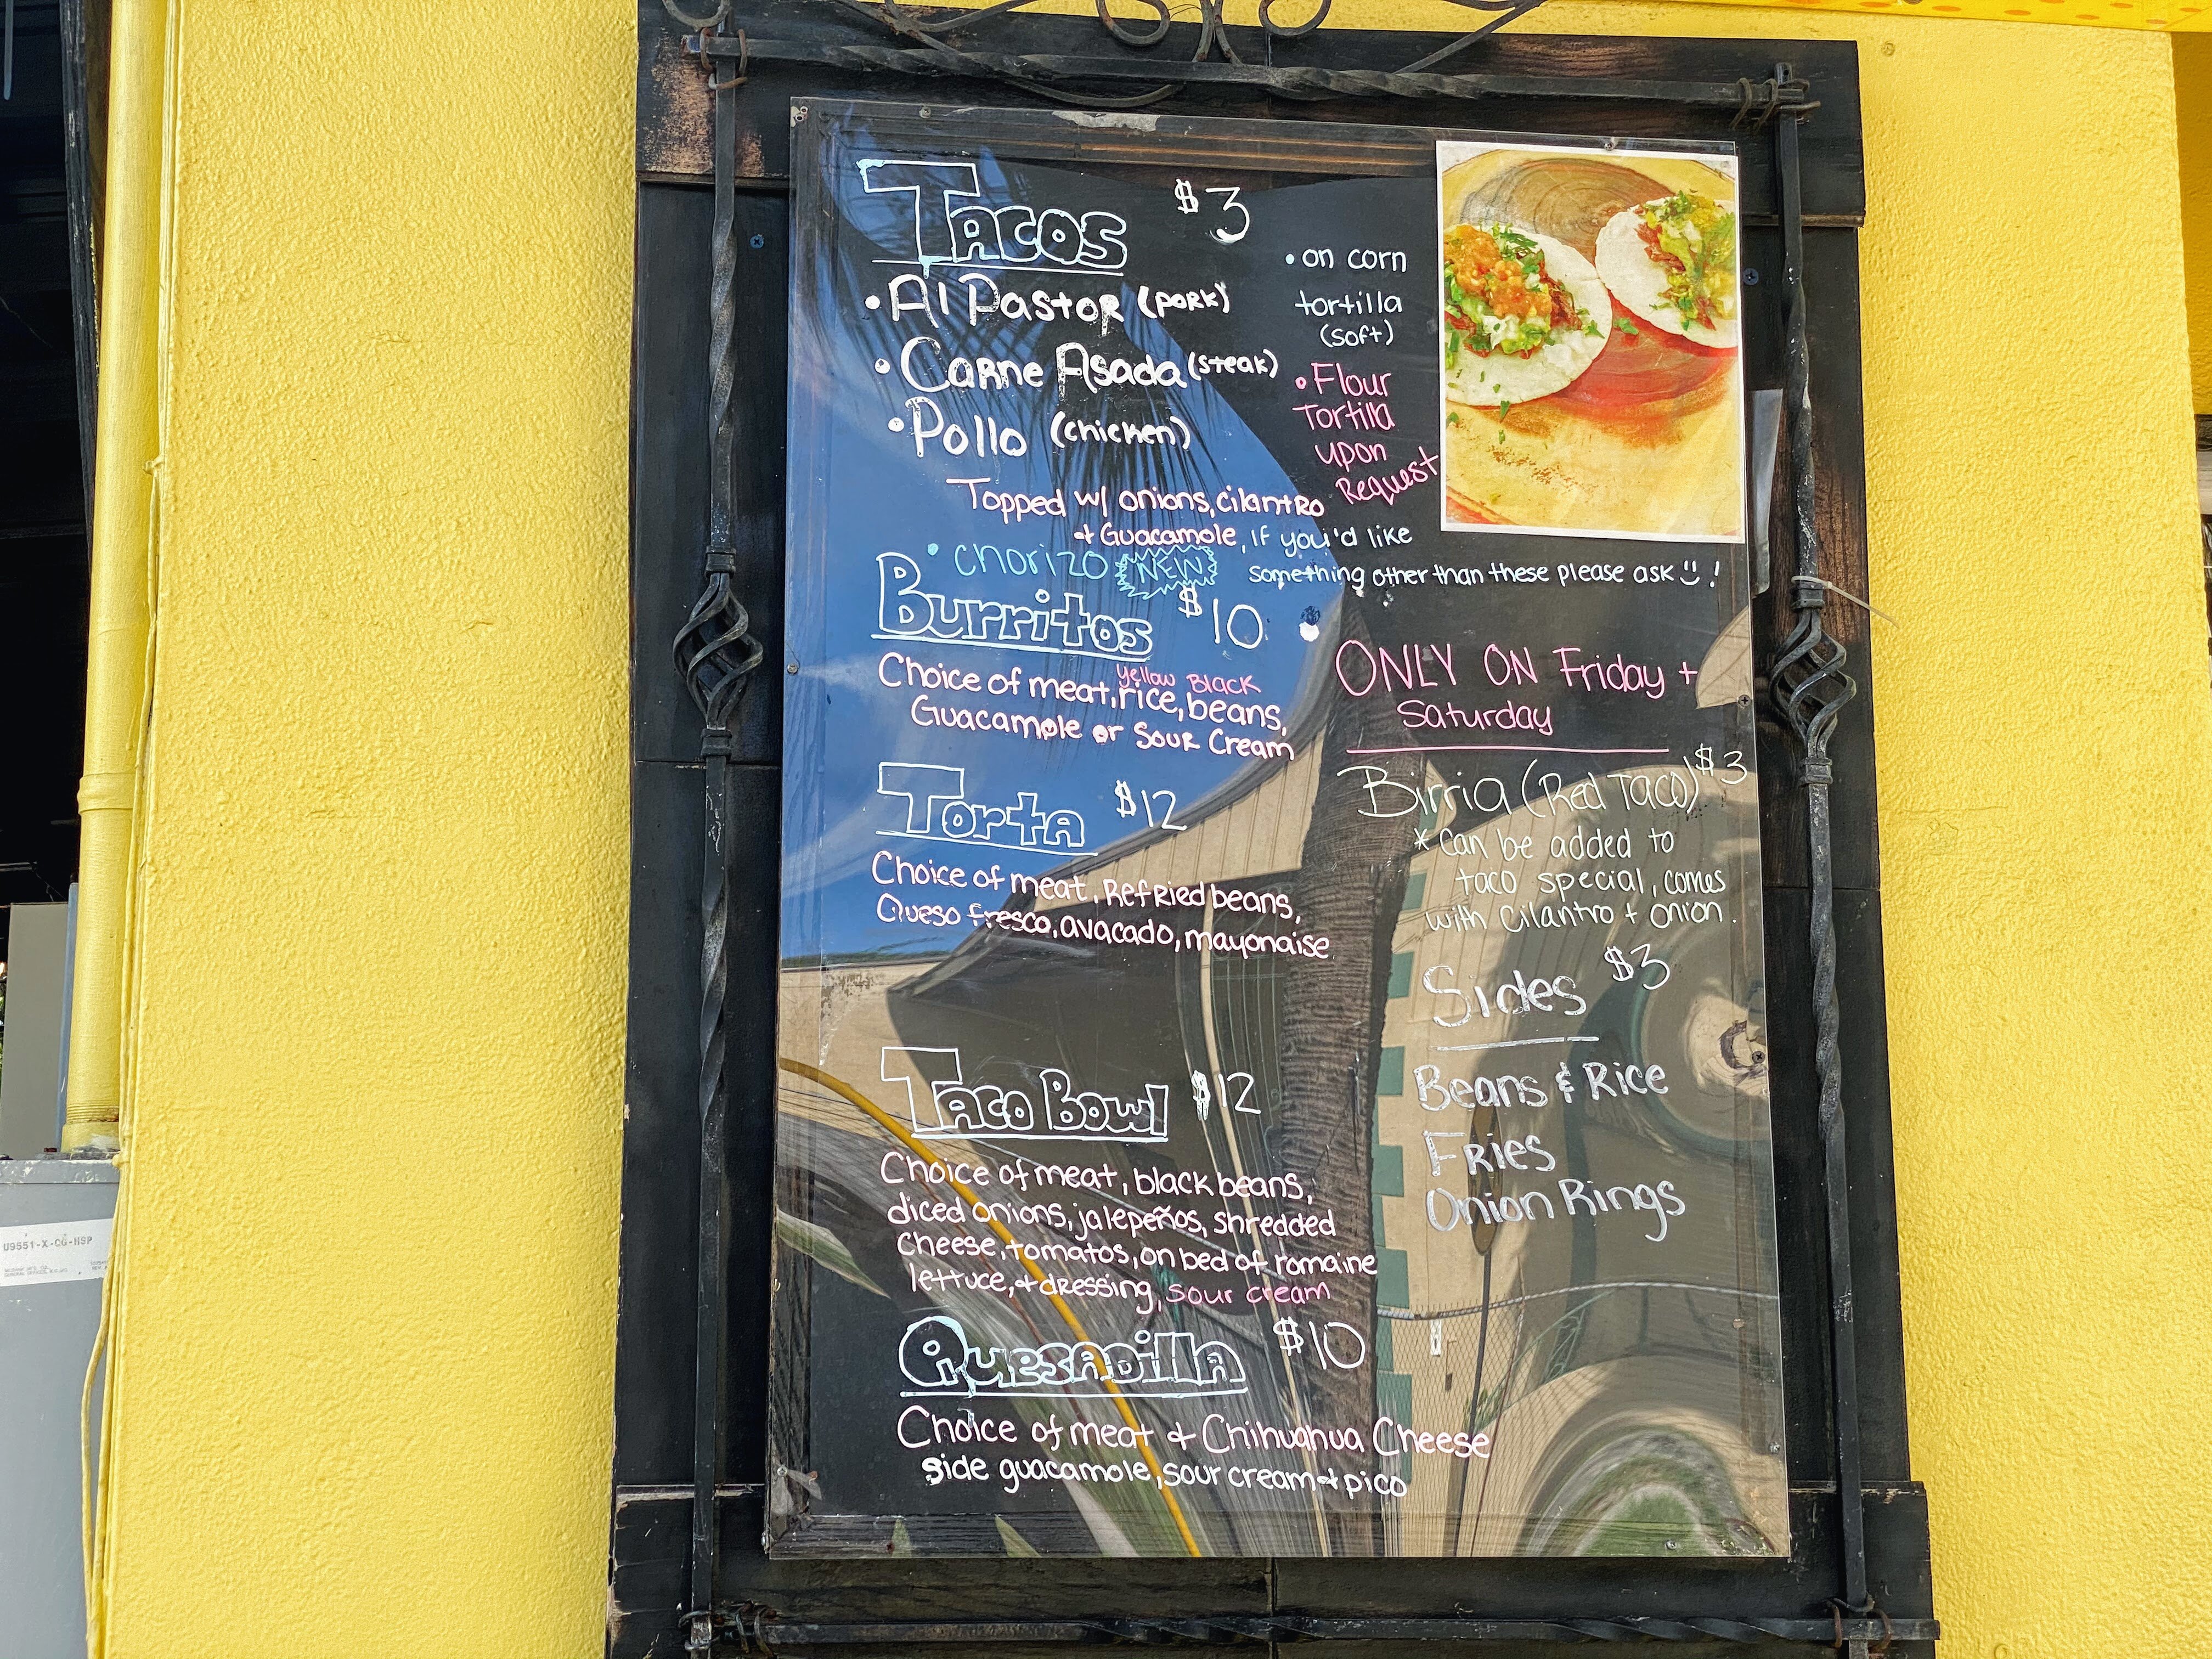 Tacos $3
• Al Pastor (pork)
• Carne Asada (steak)
• Pollo (chicken)
• on corn
tortilla
(soft)
• Flour
Tortilla
upon
Request
Topped w/ onions, cilantro
+ Guacamole, if you'd like
something other than these please ask !
• chorizo NEW
Burritos $10
Choice of meat, yellow rice, Black beans,
Guacamole or Sour Cream
Torta $12
Choice of meat, Refried beans,
Queso fresco, avacado, mayonaise
Taco Bowl $12
Choice of meat, black beans,
diced onions, jalepeños, shredded
Cheese, tomatos, on bed of romaine
lettuce, + dressing, sour cream
Quesadilla $10
Choice of meat + Chihuahua Cheese
side guacamole, sour cream + pico
ONLY ON Friday +
Saturday
Birria (Red Taco) $3
* Can be added to
taco special, comes
with cilantro + onion.
Sides $3
Beans & Rice
Fries
Onion Rings
U9551-X-CG-H9P